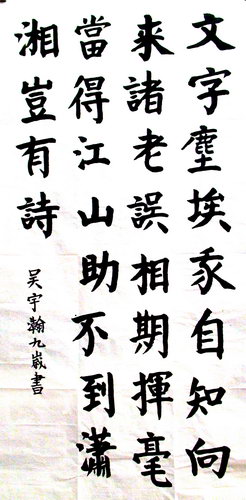 文字塵埃豕自知向
來諸老誤相期揮毫
當得江山助不到瀟
湘豈有詩
吳宇瀚九歲書